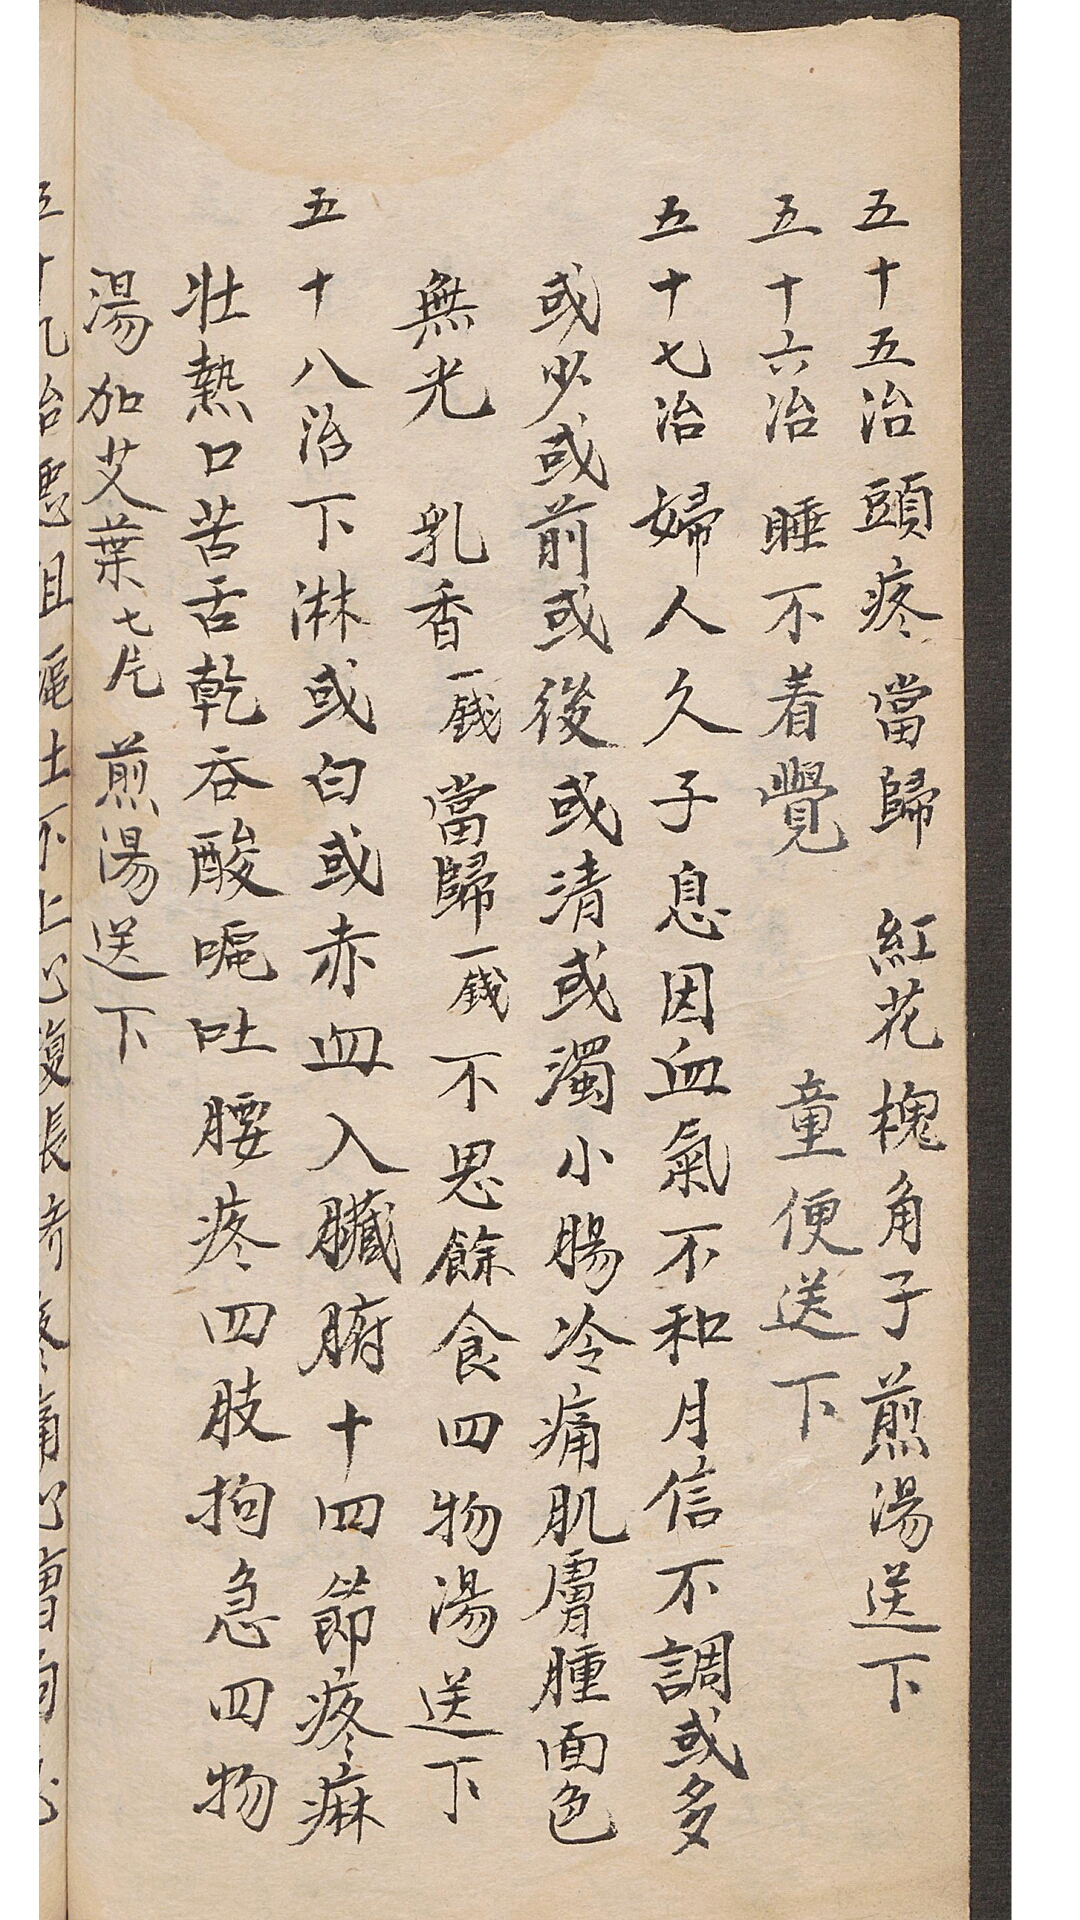 五十五治頭疼當歸紅花槐角子煎湯送下
五十六冶睡不着覺童便送下
五十七冶婦人久子息因血氣不和月信不調或多
或少或前或後或清或濁小腸冷痛肌膚腫面色
無光乳香一錢當歸一錢不思餘食四物湯送下
五十八治下淋或白或赤血入臟腑十四節疼麻
壯熱口苦舌乾吞酸嘔吐腰疼四肢拘急四物
湯加艾葉七片煎湯送下